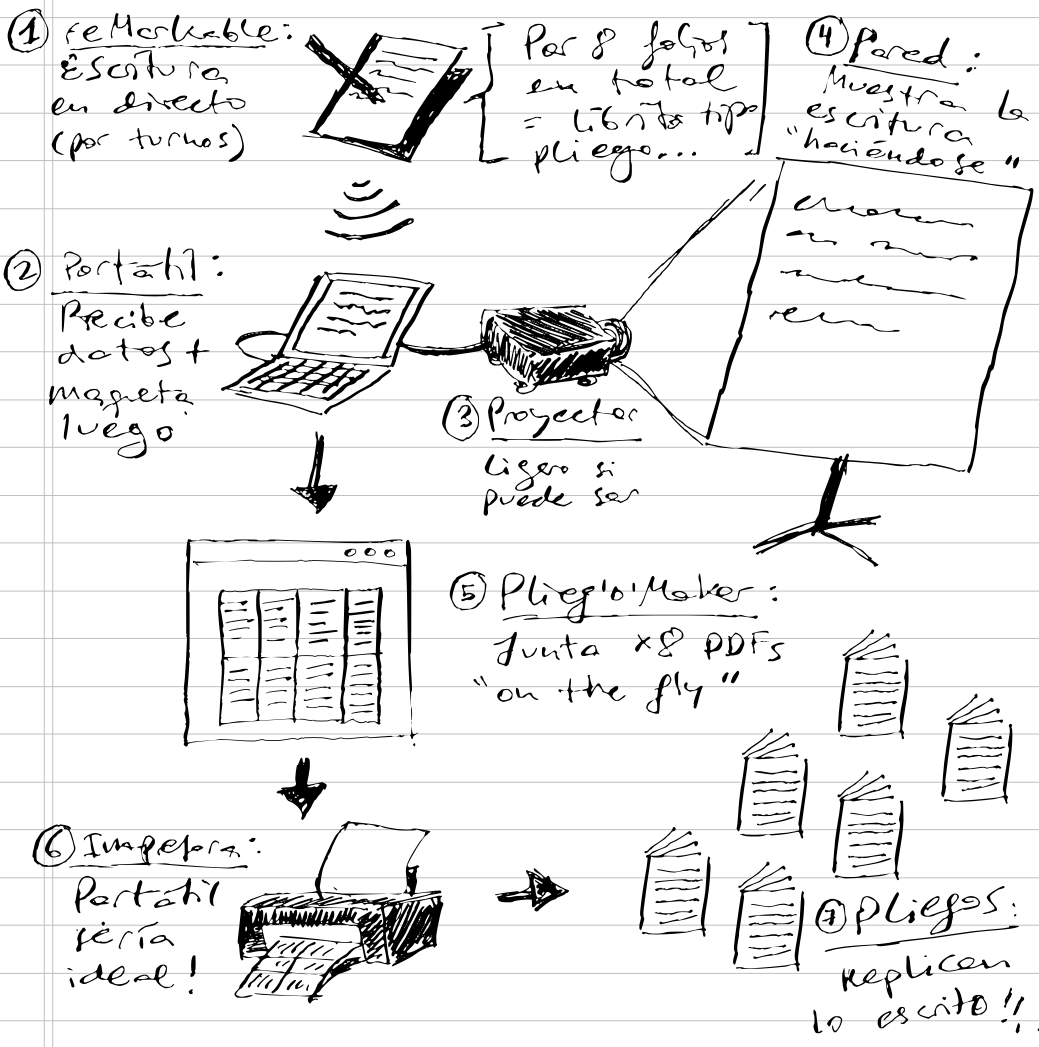 ① reMarkable:
Escritura
en directo
(por turnos)
[Por 8 folios
en total
= librito tipo
pliego...]
④ Pared:
Muestra la
escritura
"haciéndose"
② Portátil:
Recibe
datos +
maqueta
luego
③ Proyector
Ligero si
puede ser
⑤ Plieg'o'Maker:
Junta x8 PDFs
"on the fly"
⑥ Impresora:
Portátil
sería
ideal!
⑦ Pliegos:
Replican
lo escrito!!